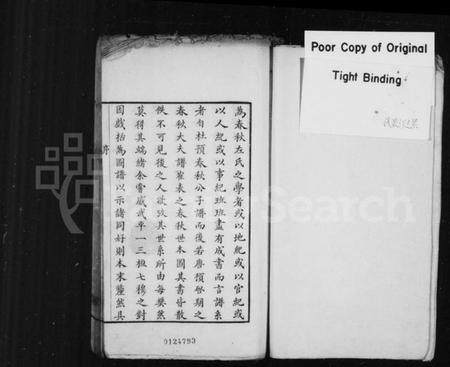 爲春秋左氏之學者或以地紀或以官紀或
以人紀或以事紀班班盡有成書而言譜系
者自杜預春秋公子譜而後若唐預啓期之
春秋大夫譜崔表之春秋世本圖其書皆散
佚不可見後之人欲攷其世系所由每奬然
莫得其端緒余嘗感戎平一三桓七穆之對
因戲拈為圖譜以示諸同好則本末釐然具
序
Poor Copy of Original
Tight Binding
0124793
Search